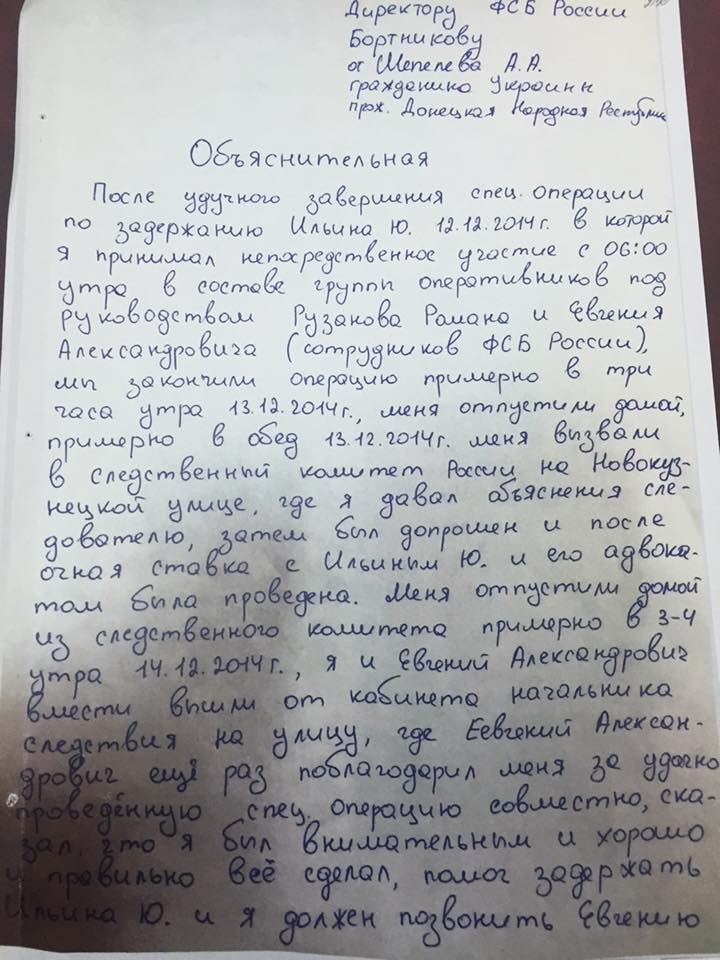 Директору ФСБ России
Бортникову
от Шепелева А.А.
гражданина Украины
прож. Донецкая Народная Республик
Объяснительная
После удучного завершения спец. операции
по задержанию Ильина Ю. 12.12.2014г. в которой
я принимал непосредственное участие с 06:00
утра в составе группы оперативников под
руководством Рузанова Романа и Евгения
Александровича (сотрудников ФСБ России),
мы закончили операцию примерно в три
часа утра 13.12.2014г., меня отпустили домой,
примерно в обед 13.12.2014г. меня вызвали
в следственный комитет России на Новокуз-
нецкой улице, где я давал объяснения сле-
дователю, затем был допрошен и после
очная ставка с Ильиным Ю. и его адвока-
том была проведена. Меня отпустили домой
из следственного комитета примерно в 3-4
утра 14.12.2014г., я и Евгений Александрович
вмести вышли от кабинета начальника
следствия на улицу, где Еевгений Алексан-
дрович ещё раз поблагодарил меня за удачно
проведённую спец. операцию совместно, ска-
зал, что я был внимательным и хорошо
и правильно всё сделал, помог задержать
Ильина Ю. и я должен позвонить Евгению